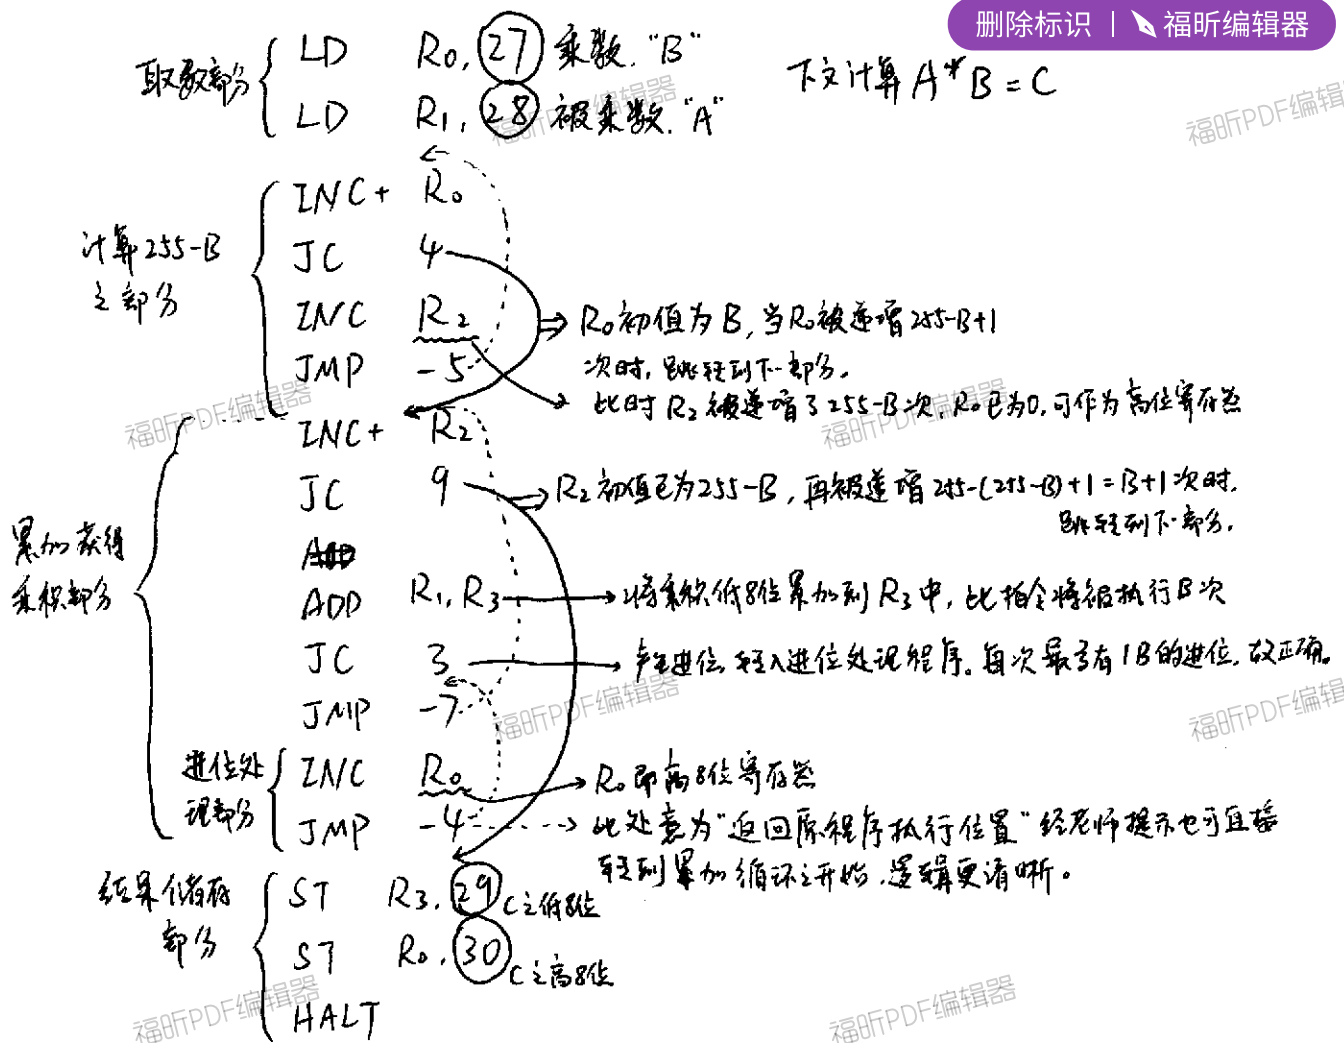 删除标识 | 福昕编辑器
取数部分
LD R0, 27 乘数 "B"
LD R1, 28 被乘数 "A"
下文计算 A*B=C
计算255-B之部分
INC+ R0
JC 4
INC R2
JMP -5
R0初值为B,当R0被递增255-B+1
次时,跳转到下一部分。
此时R2被递增了255-B次,R0已为0,可作为高位寄存器
累加获得
乘积部分
INC+ R2
JC 9
R2初值已为255-B,再被递增255-(255-B)+1=B+1次时,
跳转到下一部分。
ADD R1, R3
将乘积低8位累加到R3中,此指令将被执行B次
JC 3
产生进位,转入进位处理程序。每次最多有1B的进位,故正确。
JMP -7
进位处
理部分
INC R0
R0即高8位寄存器
JMP -4
此处意为"返回原程序执行位置"经老师提示也可直接
转到累加循环之开始,逻辑更清晰。
结果储存
部分
ST R3, 29 C之低8位
ST R0, 30 C之高8位
HALT
福昕PDF编辑器
福昕PDF编辑器
福昕PDF编辑器
福昕PDF编辑器
福昕PDF编辑器
福昕PDF编辑器
福昕PDF编辑器
福昕PDF编辑器